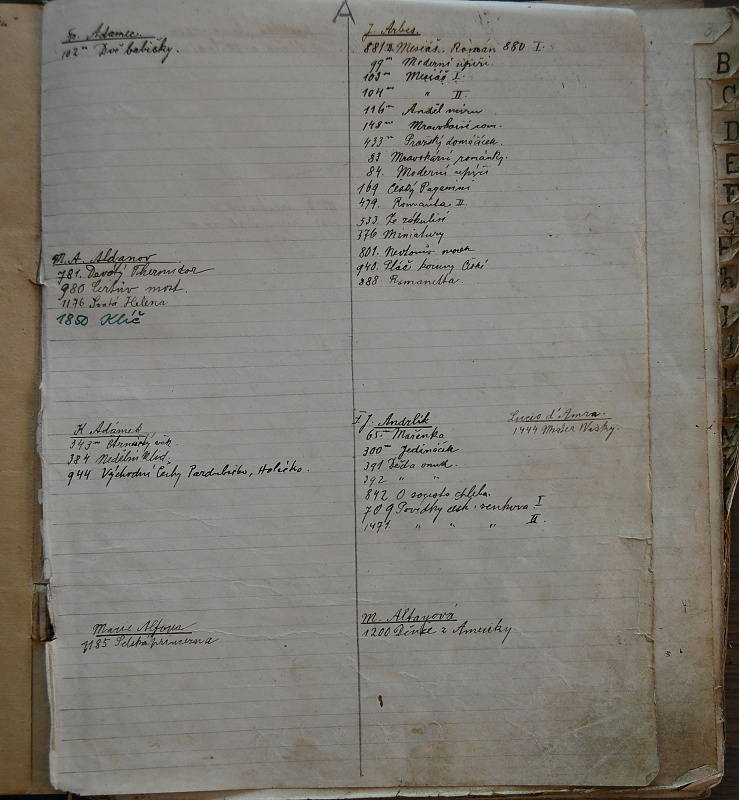 A
Fr. Adamec.
102 Dvě babičky.
M. A. Aldanov
781. Devátý Thermidor
980 Čertův most.
1176 Svatá Helena
1850 Klíč
K Adámek
343
384 Nedělní klid.
944 Východní Čechy Pardubicko, Holicko.
Marie
1185 Selská princezna
J. Arbes.
881 Mesiáš. Román 880 I.
99 Moderní upíři
103 Mesiáš I.
104 " II
116 Anděl míru
148 Mravokární rom.
433 Pražský domácíček.
83 Mravokární románky.
84. Moderní upíři
169 Český Paganini
479. Romanéta II.
533 Ze zákulisí
376 Miniatury
801. Newtonův mozek
940. Pláč koruny České
288 Romanetta.
F. J. Andrlík
65 Mařenka
300 Jedináček
391 Děda
392 " "
842 O chleba.
709 Povídky česk. venkova I
1471. " " " II.
Lucio d'Amra.
1444 Mister
M.
1200 Děvče z Ameriky
B
C
D
E
F